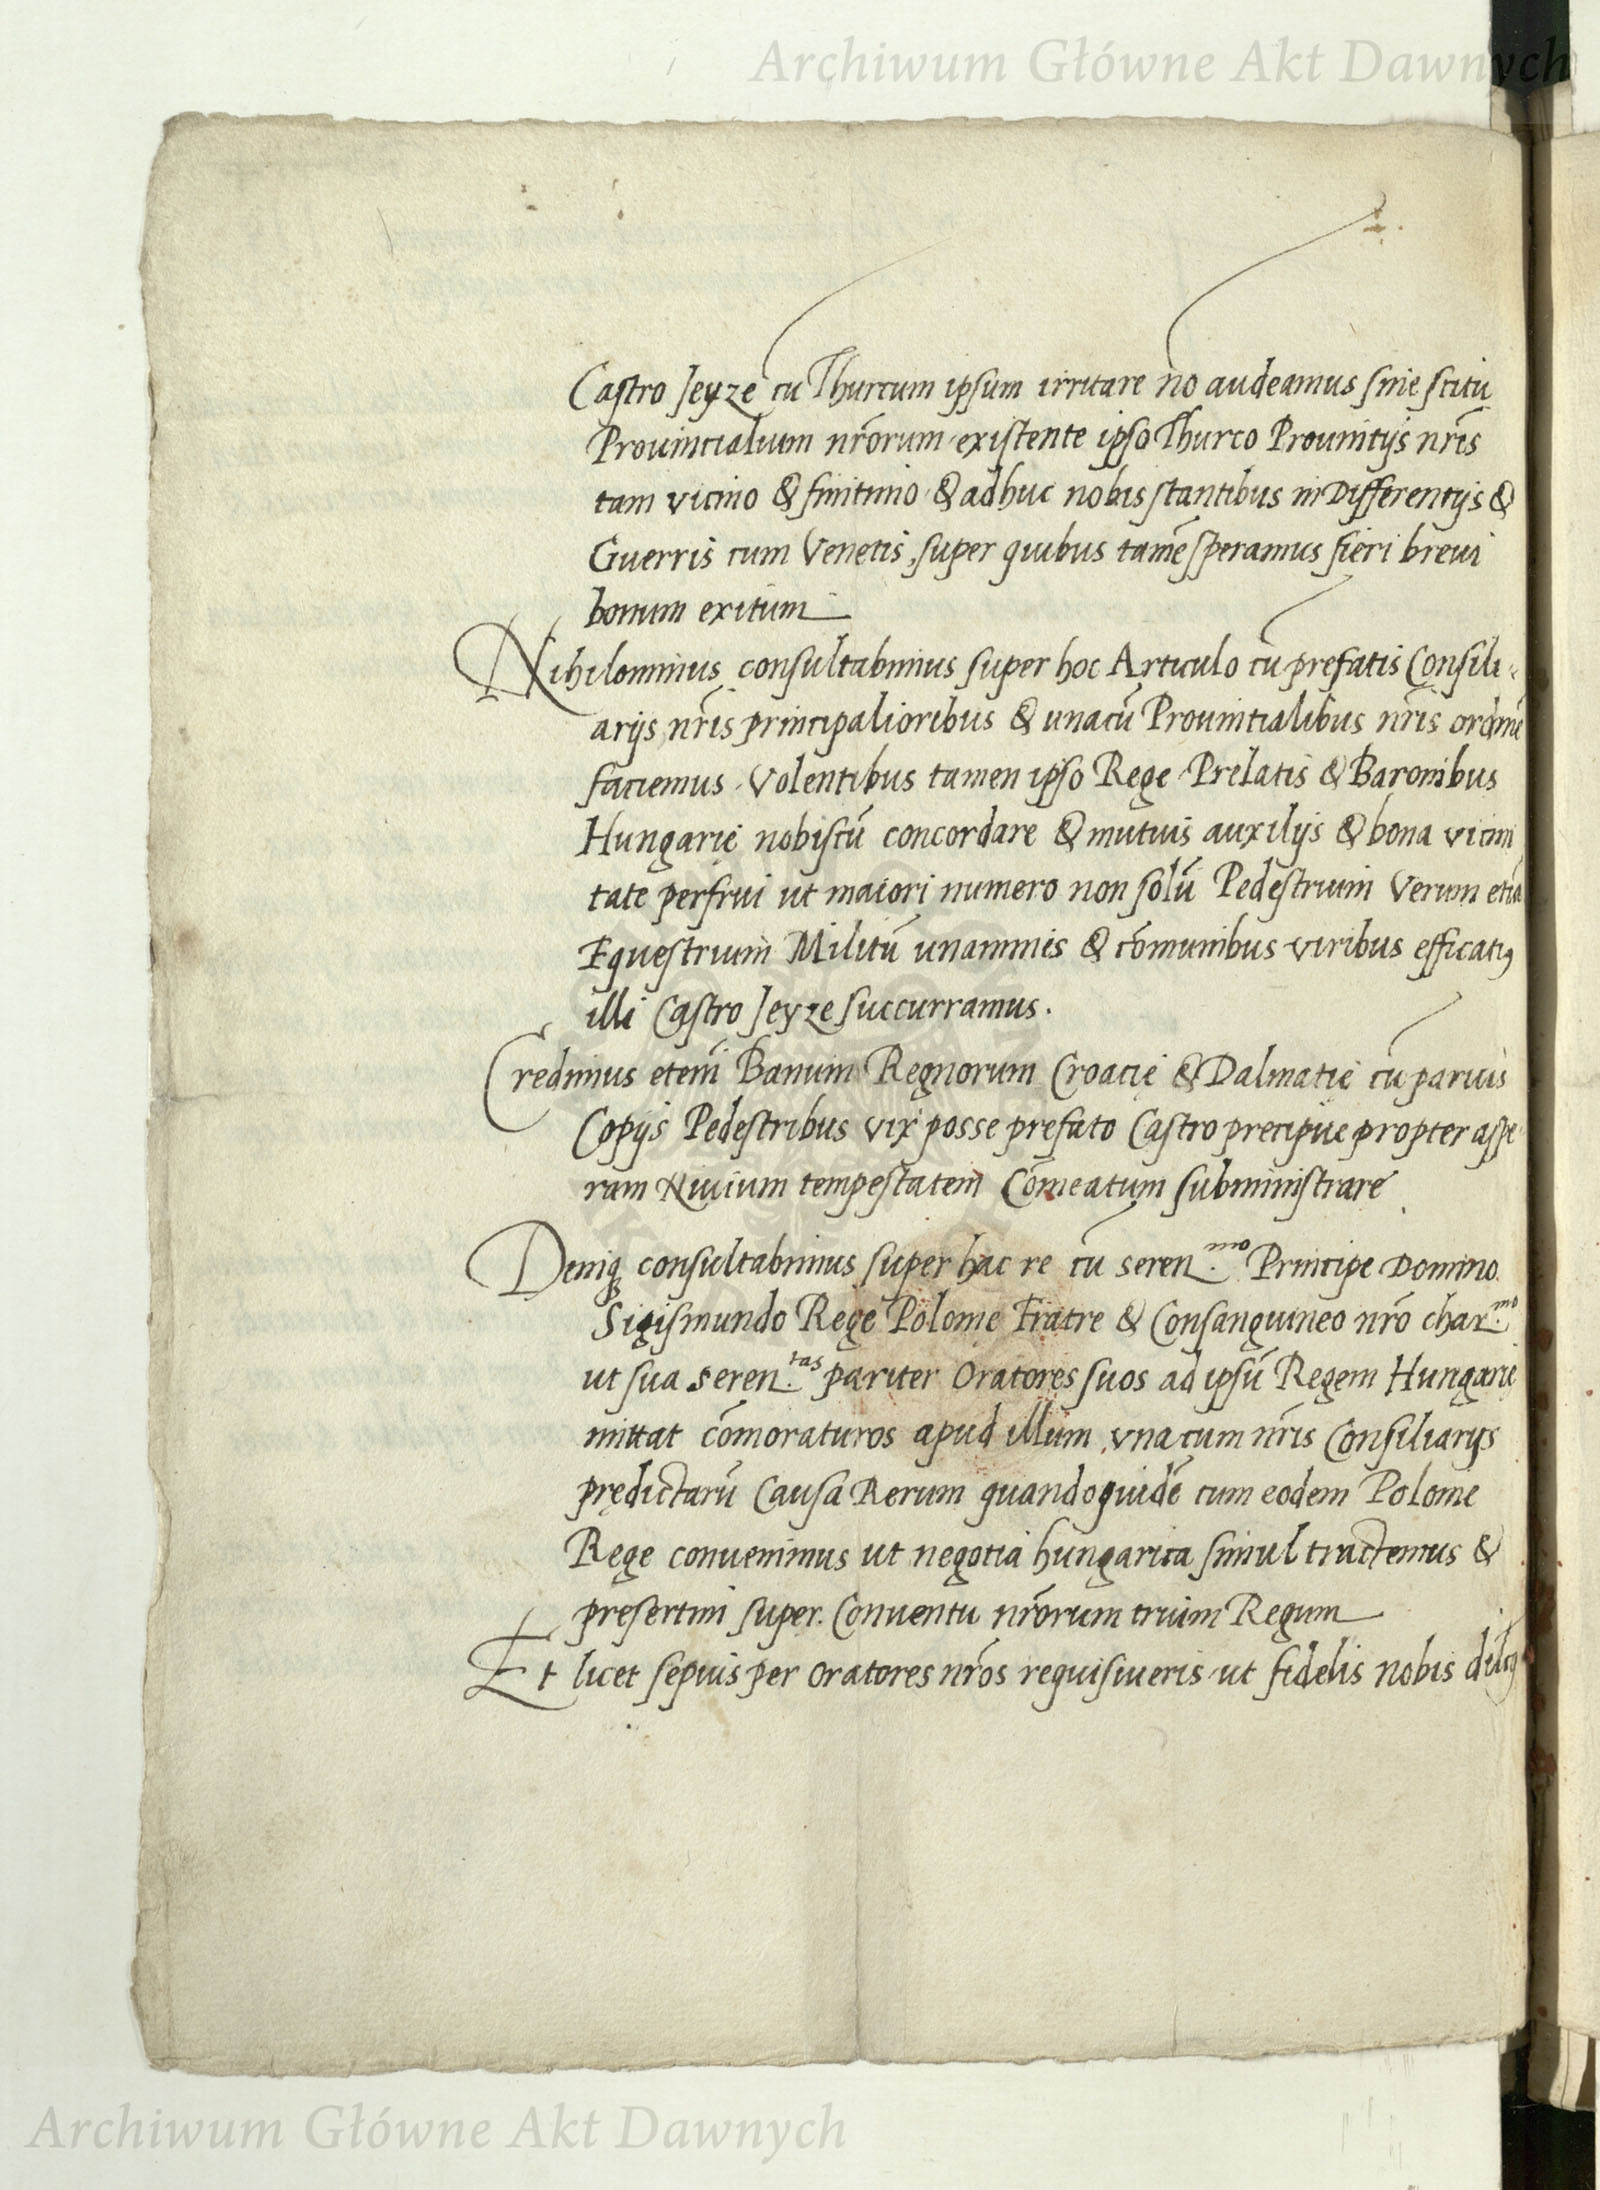 Archiwum Główne Akt Dawnych
Castro Jeyze cū Thurcum ipsum irritare nō audeamus sine scitu
Prouincialium nr̄orum existente ipso Thurco Prouincijs nr̄is
tam vicino & finitimo & adhuc nobis stantibus in Differentijs &
Guerris cum Venetis, super quibus tamē speramus fieri breui
bonum exitum
Nihilominus consultabimus super hoc Articulo cū prefatis Consili-
arijs nr̄is principalioribus & unacū Prouincialibus nr̄is ordinē
faciemus Volentibus tamen ipso Rege Prelatis & Baronibus
Hungarie nobiscū concordare & mutuis auxilijs & bona vicini
tate perfrui ut maiori numero non solū Pedestrium Verum etiā
Equestrium Militū unanimis & cōmunibus viribus efficatiꝰ
illi Castro Jeyze succurramus.
Credimus etenī Banum Regnorum Croacię & Dalmatię cū paruis
Copijs Pedestribus vix posse prefato Castro precipue propter aspe
ram Niuium tempestatem Cōmeatum subministrare
Deniqꝫ consultabimus super hac re cū seren.mo Principe Domino
Sigismundo Rege Polonie Fratre & Consanguineo nr̄o char.mo
ut sua seren.tas pariter Oratores suos ad ipsū Regem Hungarie
mittat cōmoraturos apud illum vna cum nr̄is Consiliarijs
prędictarū Causa Rerum quandoquidē cum eodem Polonie
Rege conuenimus ut negotia hungarica simul tractemus &
presertim super Conuentu nr̄orum trium Regum
Et licet sepius per Oratores nr̄os requisiueris ut fidelis nobis dilcꝰ
Archiwum Główne Akt Dawnych